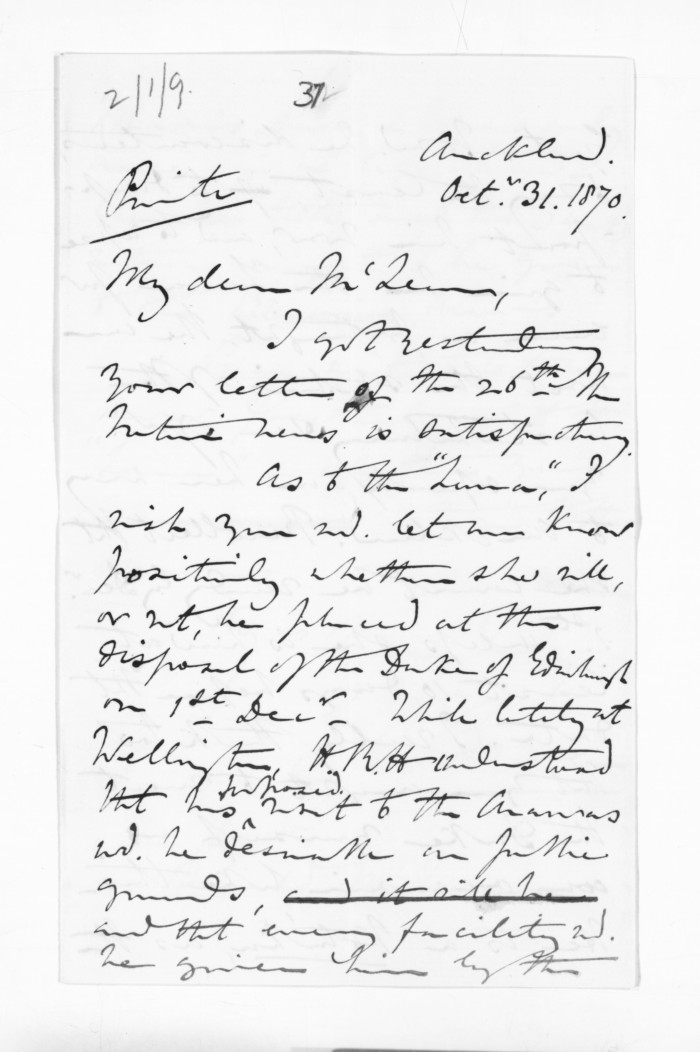 2/1/9.
37
Auckland.
Private
Oct.r 31. 1870.
My dear McLean,
I got yesterday
your letter of the 26th. The
Native news is satisfactory.
As to the "Luna", I
wish you wd. let me know
positively whether she will,
or not, be placed at the
disposal of the Duke of Edinburgh
on 1st Decr. While lately at
Wellington, H.R.H. understood
proposed
that his visit to the Arawas
wd. be desirable on public
grounds, and it will be
and that every facility wd.
be given him by the